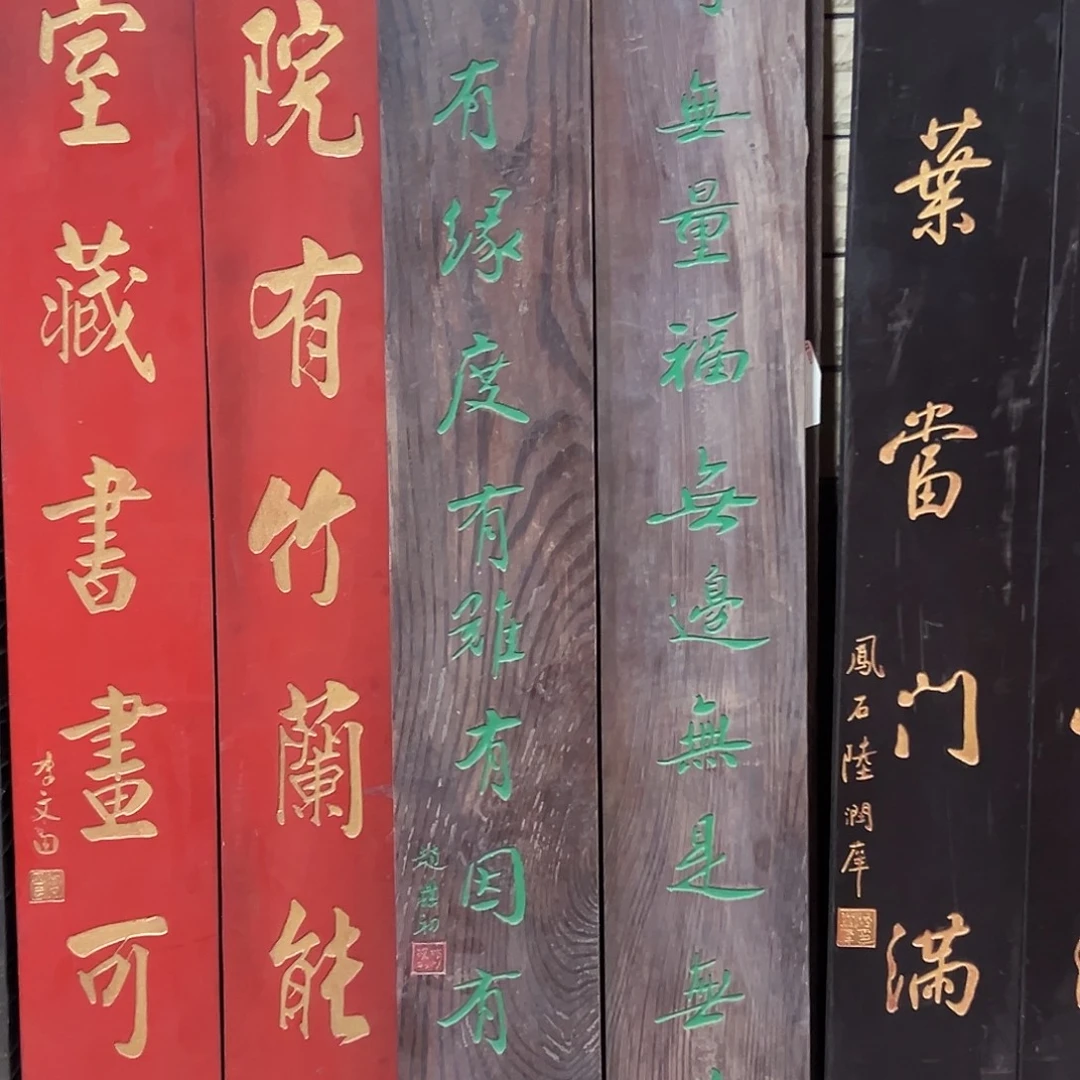 葉當門滿
鳳石陸潤庠
無量福無邊無是無
有緣度有難有因有
趙樸初
院有竹蘭能
室藏書畫可
李文田